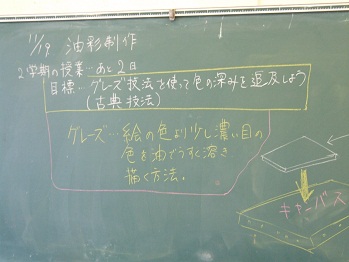 11/19 油彩制作
2学期の授業…あと2日
目標…グレーズ技法を使って色の深みを追及しよう
(古典技法)
グレーズ…絵の色より少し濃い目の
色を油でうすく溶き
描く方法.
キャンバス